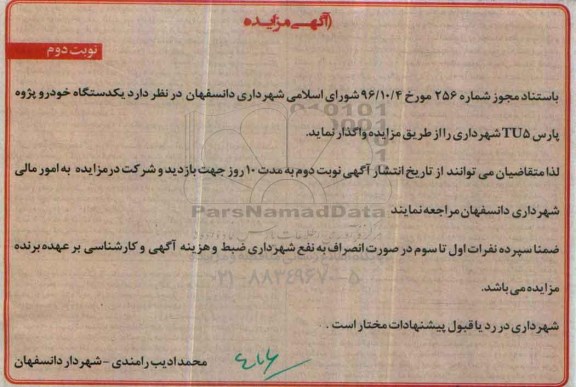 (آگهی مزایده)
نوبت دوم
باستناد مجوز شماره ۲۵۶ مورخ ۹۶/۱۰/۴ شورای اسلامی شهرداری دانسفهان در نظر دارد یکدستگاه خودرو پژوه
پارس TU۵ شهرداری را از طریق مزایده واگذار نماید.
لذا متقاضیان می توانند از تاریخ انتشار آگهی نوبت دوم به مدت ۱۰ روز جهت بازدید و شرکت در مزایده به امور مالی
شهرداری دانسفهان مراجعه نمایند
ParsNamadData
ضمنا سپرده نفرات اول تا سوم در صورت انصراف به نفع شهرداری ضبط و هزینه آگهی و کارشناسی بر عهده برنده
۰۲۱-۸۸۳۴۹۶۷۰-۵
مزایده می باشد.
شهرداری در رد یا قبول پیشنهادات مختار است .
محمد ادیب رامندی - شهردار دانسفهان